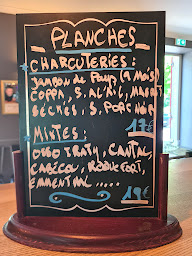 PLANCHES
CHARCUTERIES :
JAMBON DE PAYS (9 MOIS)
COPPA, S. A L'AIL, MAGRET
SÉCHÉS, S. PORC NOIR
17€
MIXTES :
OSSO IRATY, CANTAL,
CABÉCOU, ROQUEFORT,
EMMENTAL .....
19€